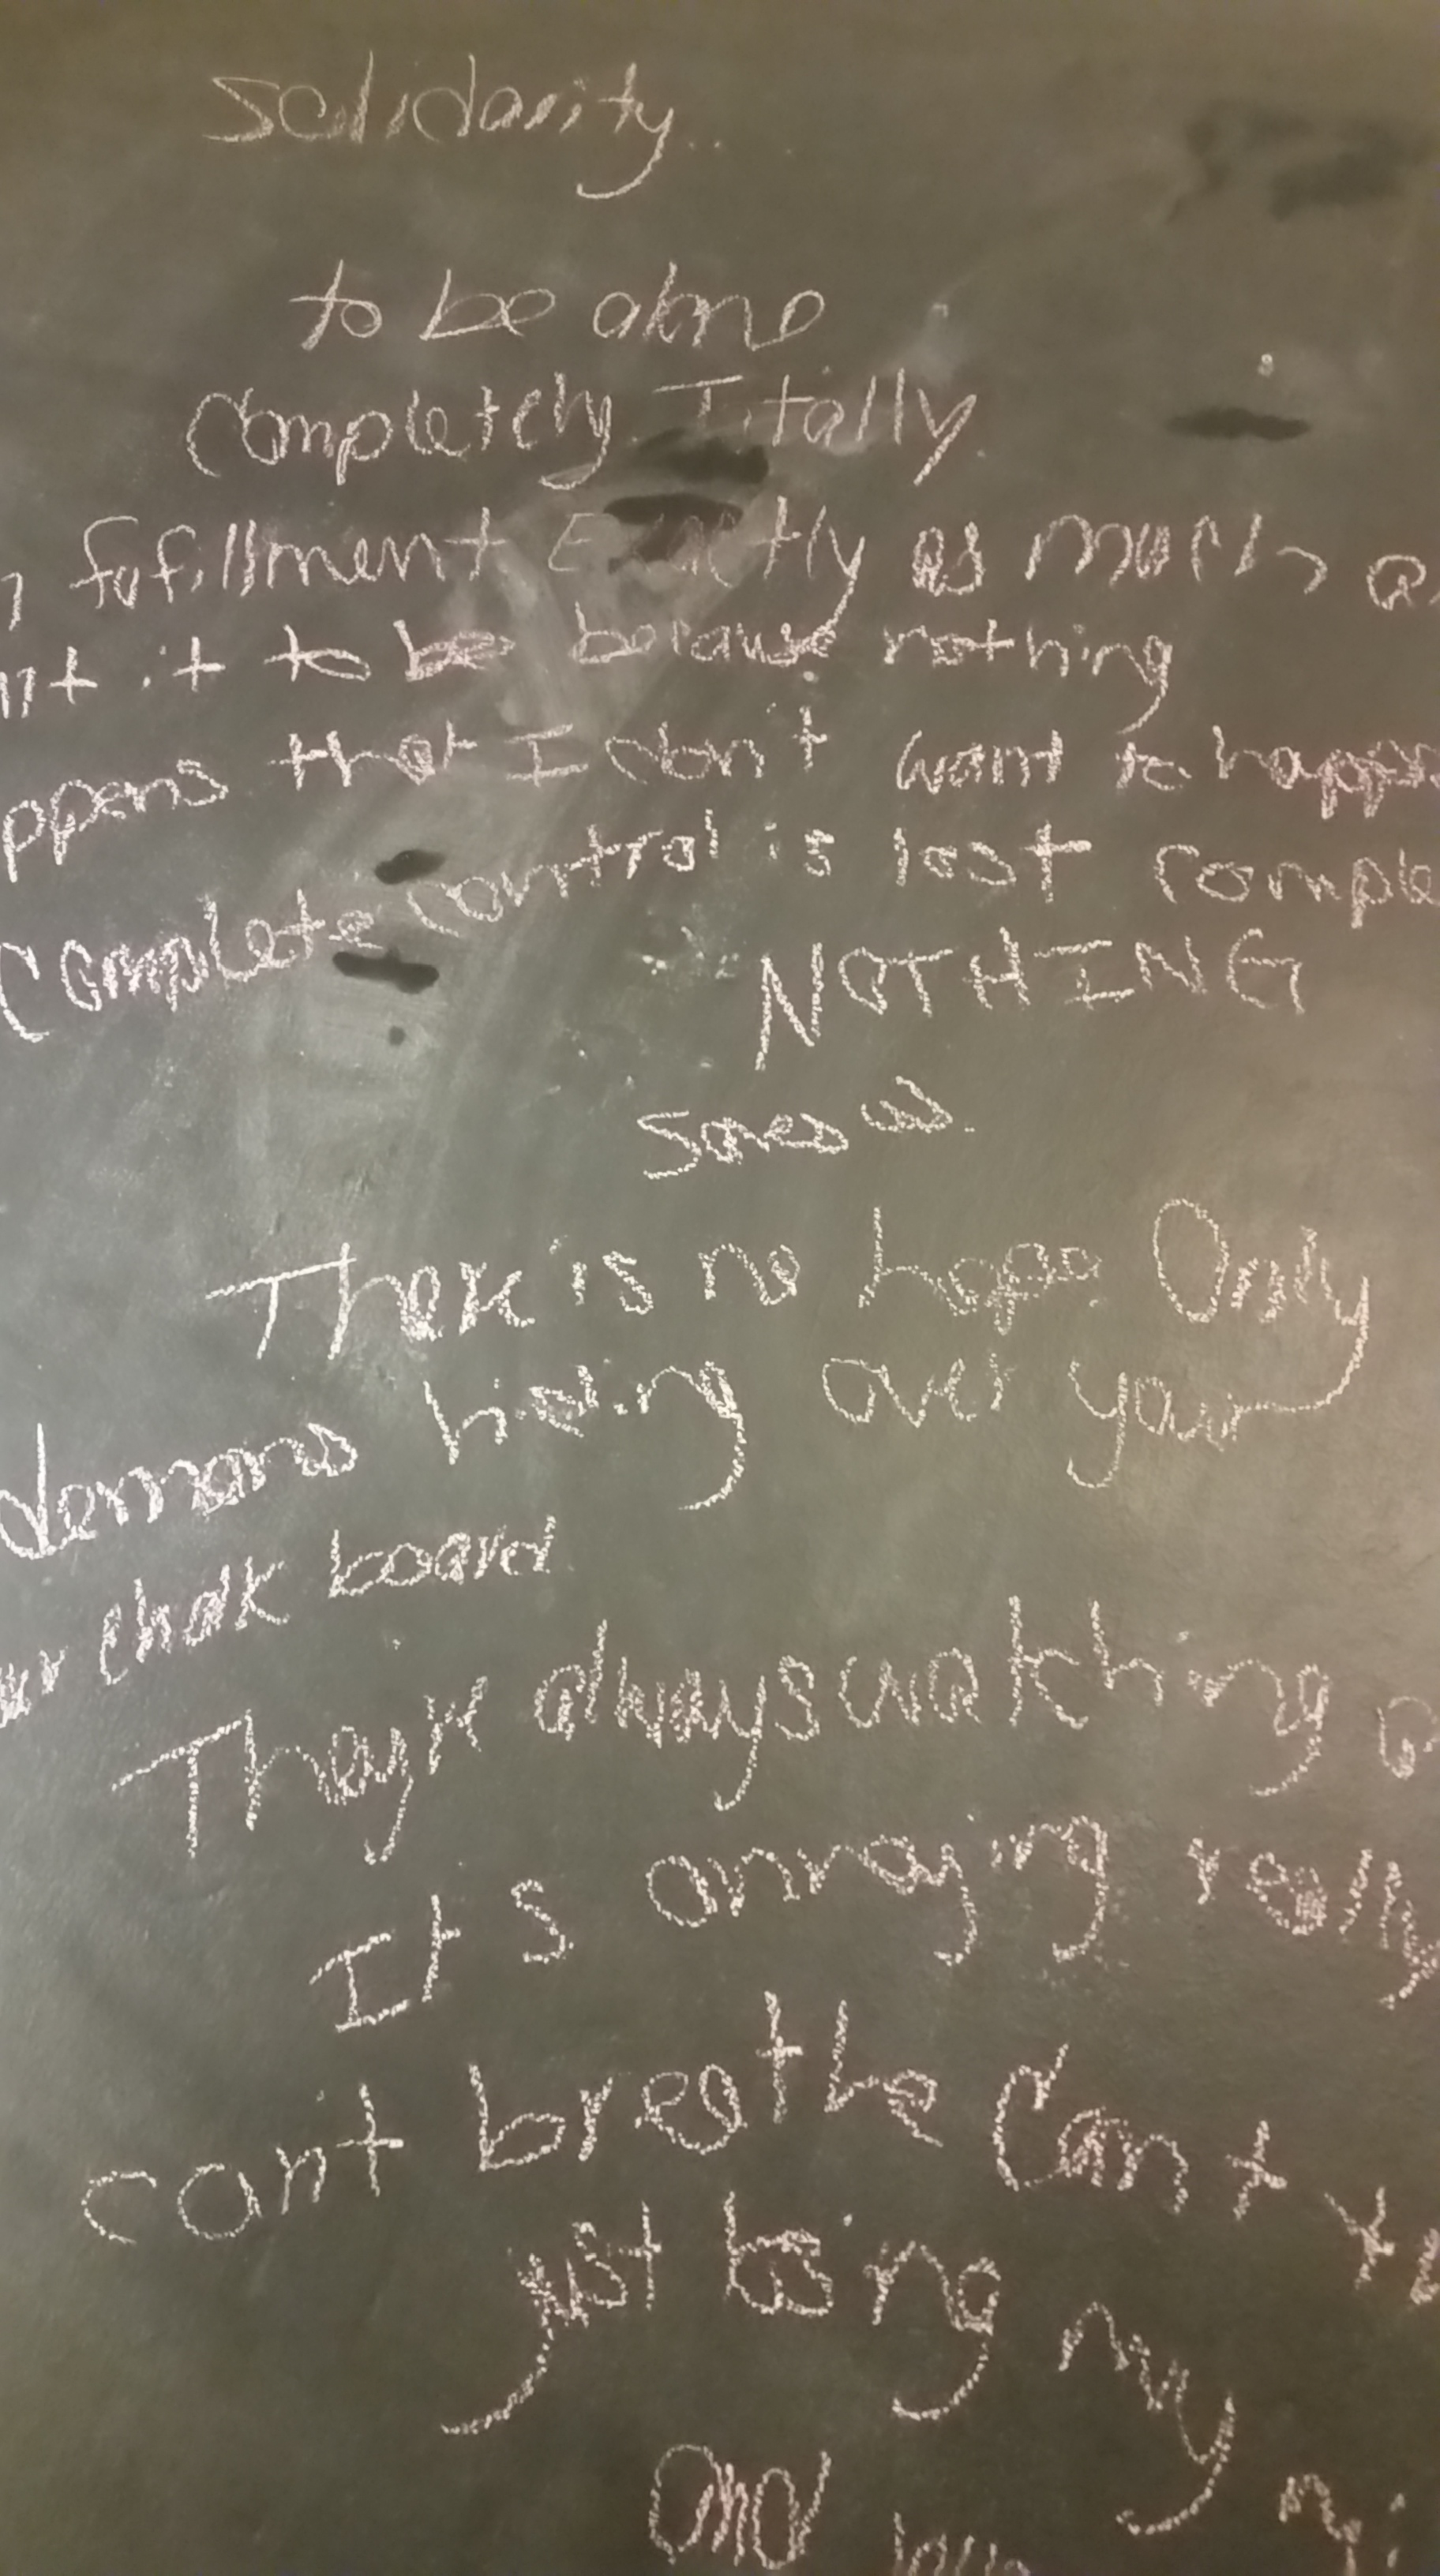 Solidarity..
to be alone
Completely Totally.
fufillment Exactly as much
it to be because nothing
ppens that I don't want to happen
Complete control is lost comple
NOTHING
Saves us.
There is no hope. Only
demons hiding over your
chalk board.
They're always watching
It's annoying really
can't breathe Can't
just losing my
And